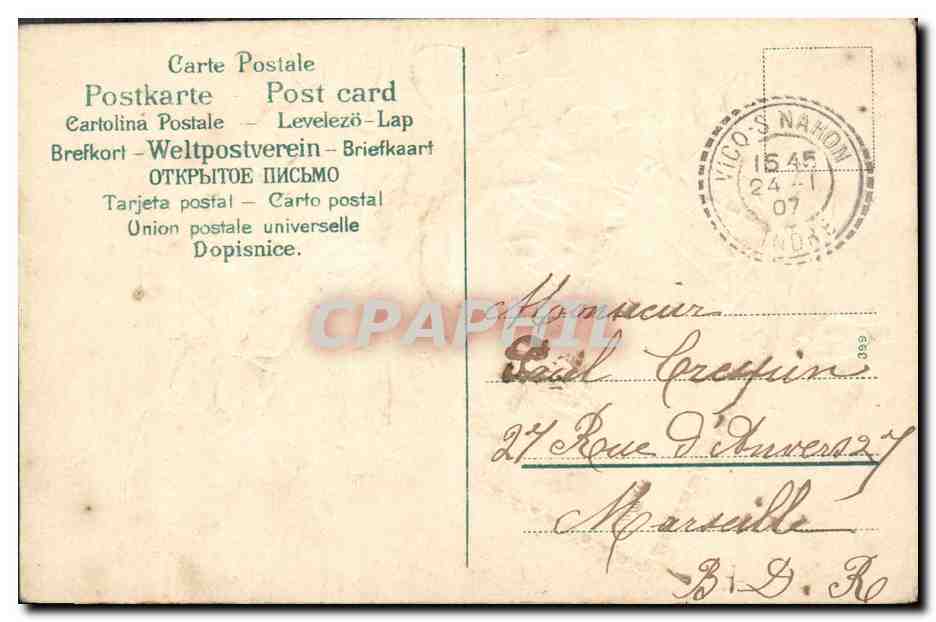 Carte Postale
Postkarte – Post card
Cartolina Postale – Levelező-Lap
Brefkort – Weltpostverein – Briefkaart
ОТКРЫТОЕ ПИСЬМО
Tarjeta postal – Carto postal
Union postale universelle
Dopisnice.
VICQ-S NAHON
16 45
24 - 1
07
INDRE
CPAPHIL
Monsieur
Paul Crespin
27 Rue d'Anvers 27
Marseille
B. D. R
399